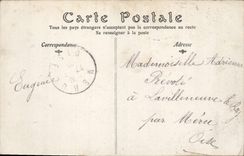 Carte Postale
Tous les pays étrangers n'acceptent pas la correspondance au recto
Se renseigner à la poste
Correspondance
Adresse
Eugénie
Mademoiselle Adrienne
Revolé
à Lavilleneuve le Roy
par Méru
Oise